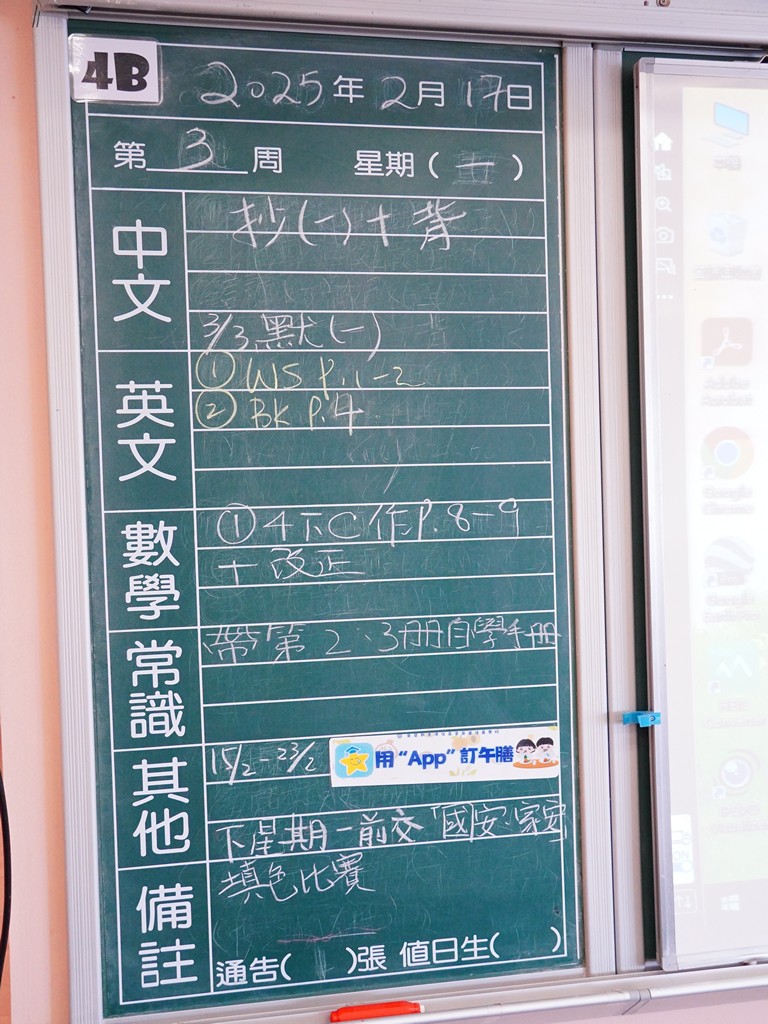 4B
2025年2月17日
第3周 星期(一)
中文
抄(一)+背
3/3 默(一)
英文
① WS P.1-2
② BK P.4
數學
① 4下C作P.8-9
+改正
常識
帶第2、3冊自學手冊
其他
15/2-23/2
用“App”訂午膳
下星期一前交「國安·家安
填色比賽
備註
通告( )張 值日生( )